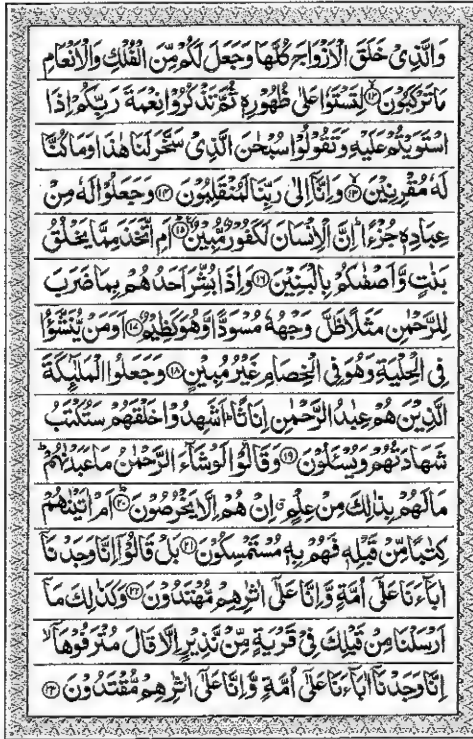 وَالَّذِىْ خَلَقَ الْاَزْوَاجَ كُلَّهَا وَجَعَلَ لَكُمْ مِّنَ الْفُلْكِ وَالْاَنْعَامِ
مَا تَرْكَبُوْنَ ﴿۱۲﴾ لِتَسْتَوٗا عَلٰى ظُهُوْرِهٖ ثُمَّ تَذْكُرُوْا نِعْمَةَ رَبِّكُمْ اِذَا
اسْتَوَيْتُمْ عَلَيْهِ وَتَقُوْلُوْا سُبْحٰنَ الَّذِىْ سَخَّرَ لَنَا هٰذَا وَمَا كُنَّا
لَهٗ مُقْرِنِيْنَ ﴿۱۳﴾ وَاِنَّاۤ اِلٰى رَبِّنَا لَمُنْقَلِبُوْنَ ﴿۱۴﴾ وَجَعَلُوْا لَهٗ مِنْ
عِبَادِهٖ جُزْءًا ؕ اِنَّ الْاِنْسَانَ لَكَفُوْرٌ مُّبِيْنٌ ﴿۱۵﴾ اَمِ اتَّخَذَ مِمَّا يَخْلُقُ
بَنٰتٍ وَّاَصْفٰىكُمْ بِالْبَنِيْنَ ﴿۱۶﴾ وَاِذَا بُشِّرَ اَحَدُهُمْ بِمَا ضَرَبَ
لِلرَّحْمٰنِ مَثَلًا ظَلَّ وَجْهُهٗ مُسْوَدًّا وَّهُوَ كَظِيْمٌ ﴿۱۷﴾ اَوَمَنْ يُّنَشَّؤُا
فِى الْحِلْيَةِ وَهُوَ فِى الْخِصَامِ غَيْرُ مُبِيْنٍ ﴿۱۸﴾ وَجَعَلُوا الْمَلٰٓئِكَةَ
الَّذِيْنَ هُمْ عِبٰدُ الرَّحْمٰنِ اِنَاثًا ؕ اَشَهِدُوْا خَلْقَهُمْ ؕ سَتُكْتَبُ
شَهَادَتُهُمْ وَيُسْـَٔلُوْنَ ﴿۱۹﴾ وَقَالُوْا لَوْ شَآءَ الرَّحْمٰنُ مَا عَبَدْنٰهُمْ ؕ
مَا لَهُمْ بِذٰلِكَ مِنْ عِلْمٍ ۗ اِنْ هُمْ اِلَّا يَخْرُصُوْنَ ﴿۲۰﴾ اَمْ اٰتَيْنٰهُمْ
كِتٰبًا مِّنْ قَبْلِهٖ فَهُمْ بِهٖ مُسْتَمْسِكُوْنَ ﴿۲۱﴾ بَلْ قَالُوْۤا اِنَّا وَجَدْنَاۤ
اٰبَآءَنَا عَلٰۤى اُمَّةٍ وَّاِنَّا عَلٰۤى اٰثٰرِهِمْ مُّهْتَدُوْنَ ﴿۲۲﴾ وَكَذٰلِكَ مَاۤ
اَرْسَلْنَا مِنْ قَبْلِكَ فِىْ قَرْيَةٍ مِّنْ نَّذِيْرٍ اِلَّا قَالَ مُتْرَفُوْهَاۤ ۙ
اِنَّا وَجَدْنَاۤ اٰبَآءَنَا عَلٰۤى اُمَّةٍ وَّاِنَّا عَلٰۤى اٰثٰرِهِمْ مُّقْتَدُوْنَ ﴿۲۳﴾